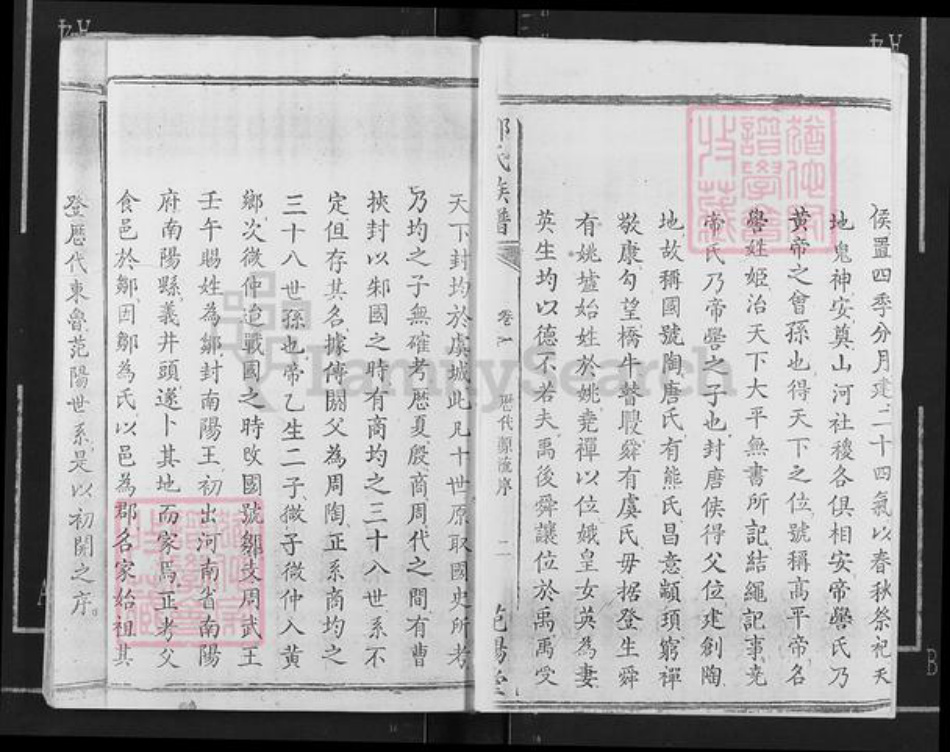 侯置四季分月建二十四氣以春秋祭祀天
地鬼神安奠山河社稷各俱相安帝嚳氏乃
黃帝之曾孫也得天下之位號稱高平帝名
嚳姓姬治天下大平無書所記結繩記事堯
帝氏乃帝嚳之子也封唐侯得父位建創陶
地故稱國號陶唐氏有熊氏昌意顓頊窮禪
敬康勾望橋牛瞽瞍舜有虞氏毋据登生舜
有姚墟始姓於姚堯禪以位娥皇女英為妻
英生均以德不若夫禹後舜讓位於禹禹受
氏族譜
卷
歷代源流序
二
范陽堂
天下封均於虞城此凡十世原取國史所考
乃均之子無確考歷夏殷商周代之間有曹
挾封以邾國之時有商均之三十八世系不
定但存其名據傳閼父為周陶正系商均之
三十八世孫也帝乙生二子微子微仲入黃
鄉次微仲迨戰國之時改國號鄒支周武王
壬午賜姓為鄒封南陽王初出河南省南陽
府南陽縣義井頭遂卜其地而家焉正考父
食邑於鄒因鄒為氏以邑為郡名家始祖其
登歷代東魯范陽世系是以初開之序
FamilySearch